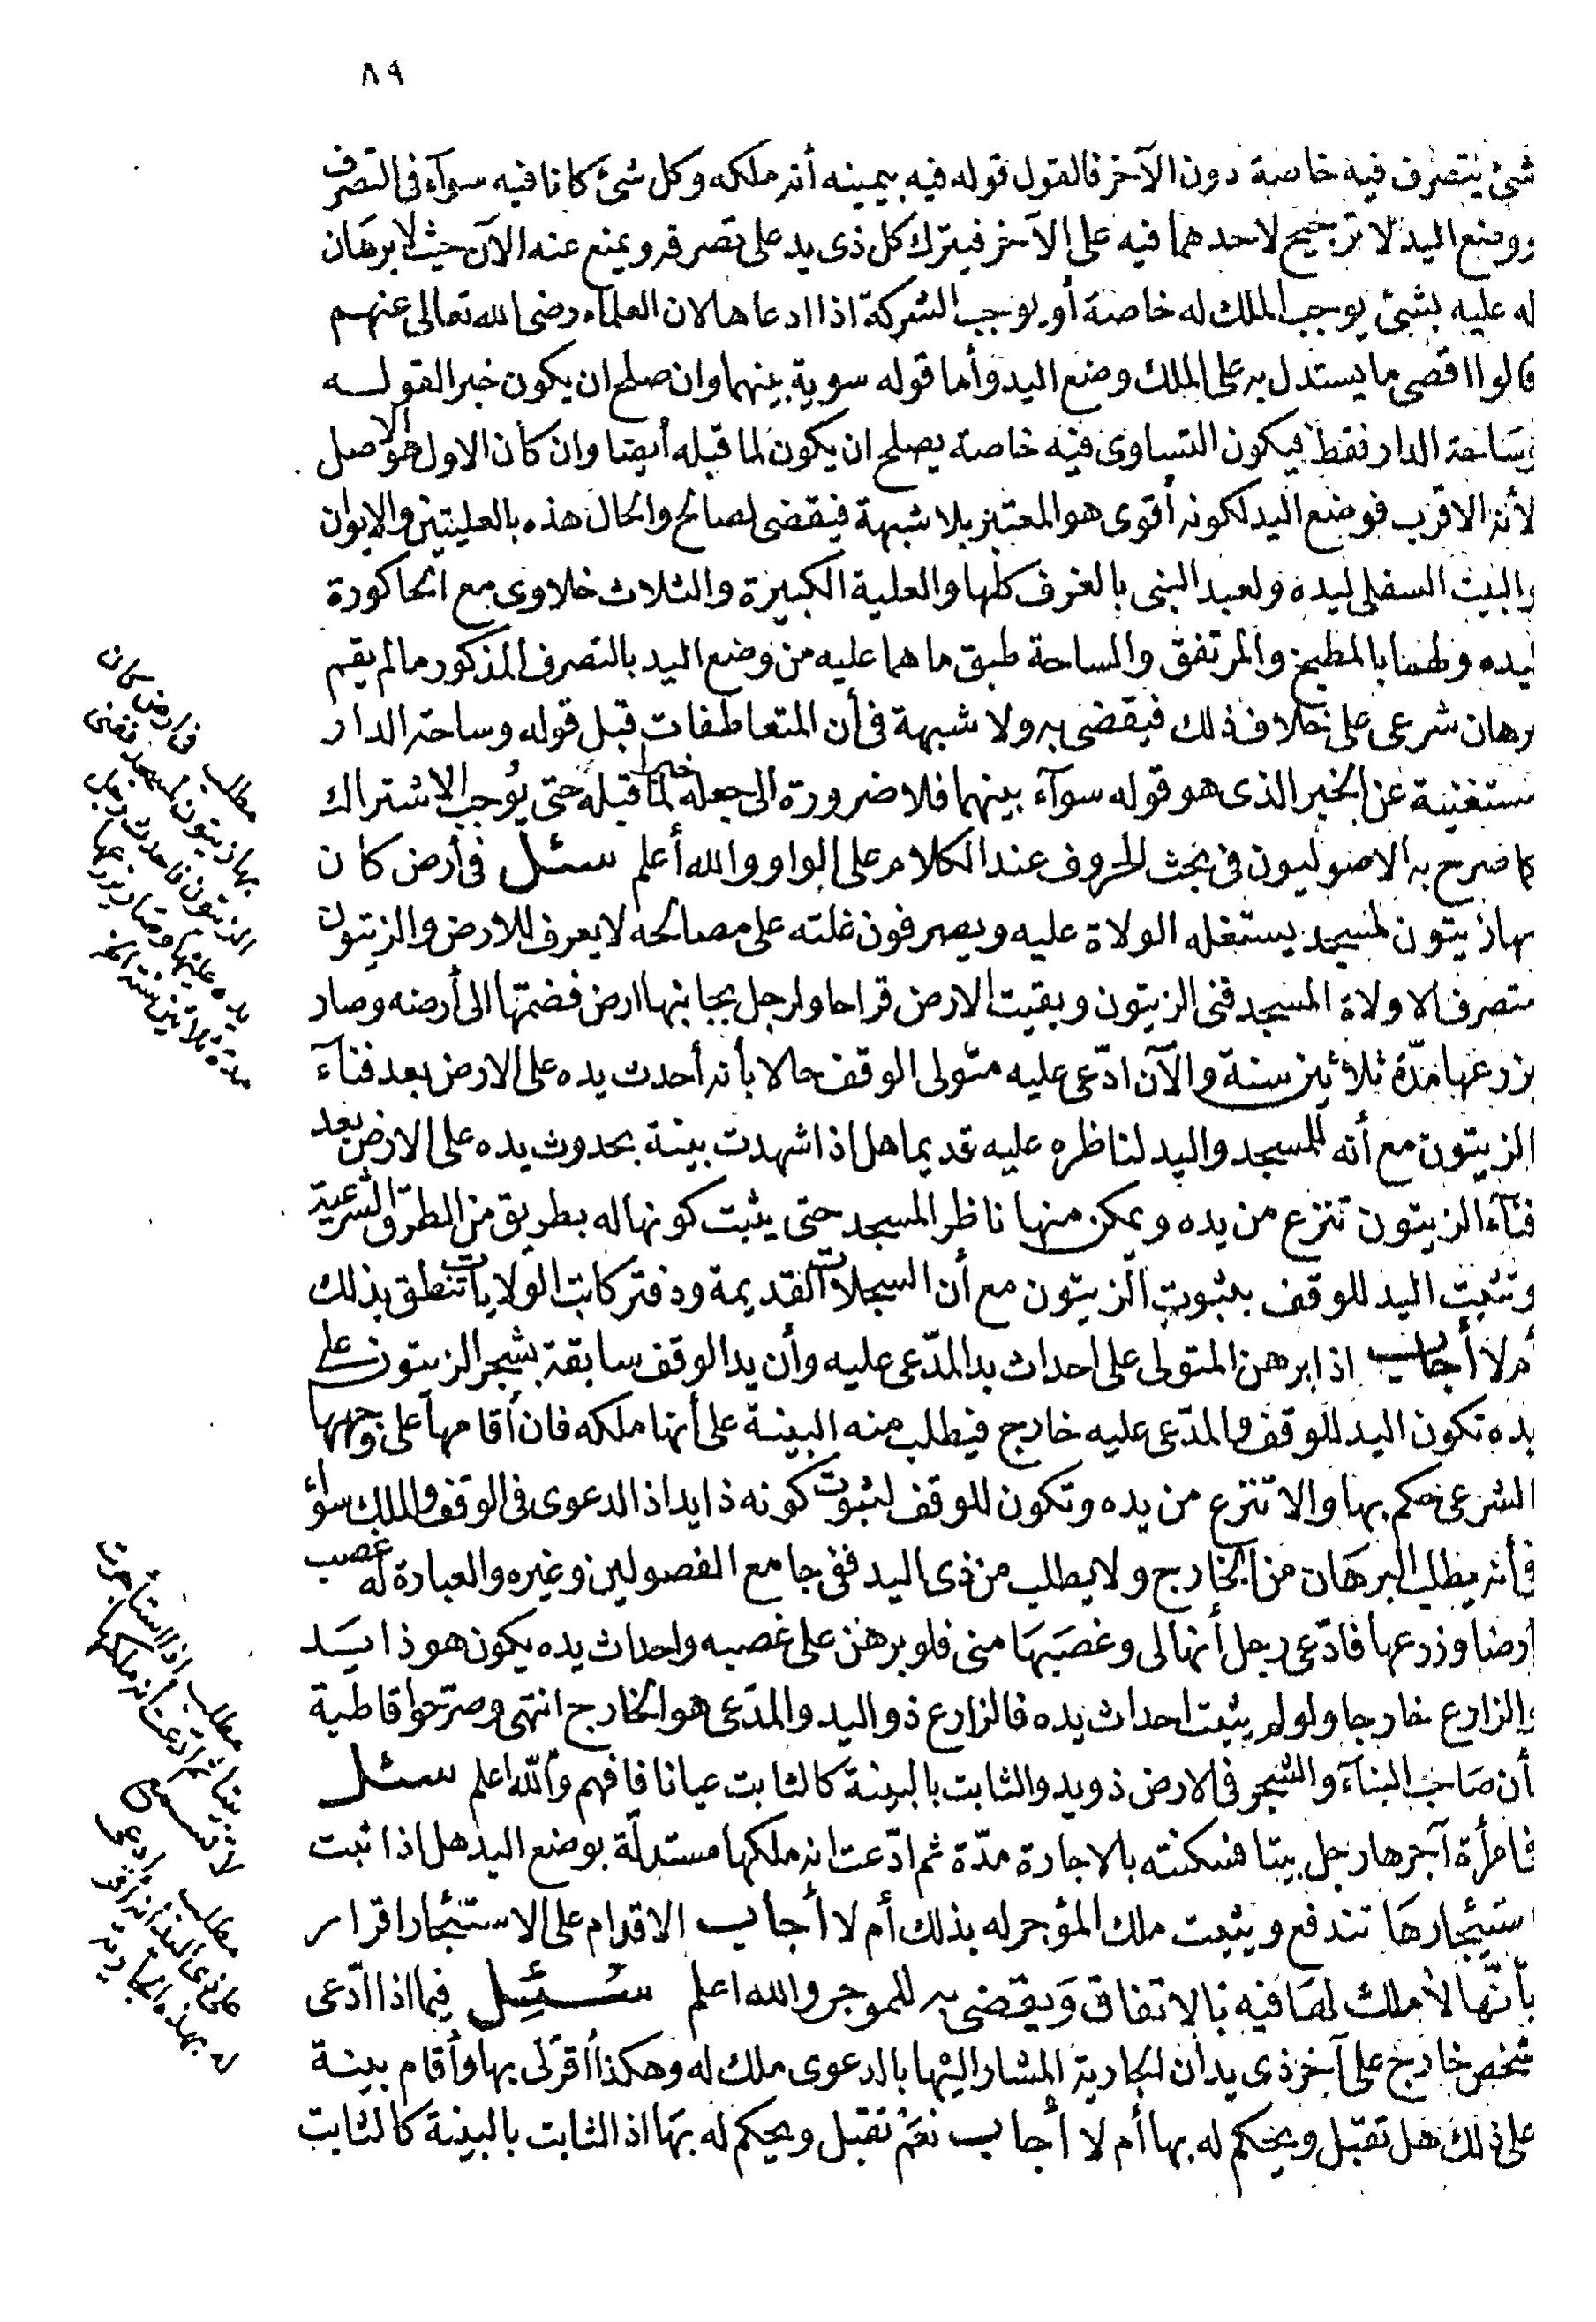 ٨٩
شئ يتصرف فيه خاصة دون الآخر فالقول قوله فيه بيمينه أنه ملكه وكل شئ كانا فيه سوآء فى التصرف
ووضع اليد لا ترجيح لاحدهما فيه على الآخر فيترك كل ذى يد على تصرفه ويمنع عنه الآن حيث لا برهان
له عليه بشئ يوجب الملك له خاصة أو يوجب الشركة اذا ادعاها لان العلمآء رضى الله تعالى عنهم
قالوا اقصى ما يستدل به على الملك وضع اليد وأما قوله سوية بينهما وان صلح ان يكون خبرا لقوله
وساحة الدار فقط فيكون التساوى فيه خاصة يصلح ان يكون لما قبله أيضا وان كان الاول هو الاصل
لأنه الاقرب فوضع اليد لكونه أقوى هو المعتبر بلا شبهة فيقضى لصالح والحال هذه بالعليتين والايوان
والبيت السفلى ليده ولعبد النبى بالغرف كلها والعلية الكبيرة والثلاث خلاوى مع الحاكورة
ليده ولهما بالمطبخ والمرتفق والساحة طبق ما هما عليه من وضع اليد بالتصرف المذكور ما لم يقم
برهان شرعى على خلاف ذلك فيقضى به ولا شبهة فى أن المتعاطفات قبل قوله وساحة الدار
مستغنية عن الخبر الذى هو قوله سوآء بينهما فلا ضرورة الى جعله خبرا لما قبله حتى يوجب الاشتراك
كما صرح به الاصوليون فى بحث الحروف عند الكلام على الواو والله أعلم سئل فى أرض كان
بها زيتون لمسجد يستغله الولاة عليه ويصرفون غلته على مصالحه لا يعرف للارض والزيتون
متصرف الا ولاة المسجد ففنى الزيتون وبقيت الارض قراحا ولرجل بجانبها ارض فضمها الى أرضه وصار
يزرعها مدّة ثلاثين سنة والآن ادّعى عليه متولى الوقف حالا بأنه أحدث يده على الارض بعد فنآء
الزيتون مع أنه للمسجد واليد لناظره عليه قديما هل اذا شهدت بينة بحدوث يده على الارض بعد
فنآء الزيتون تنزع من يده ويمكن منها ناظر المسجد حتى يثبت كونها له بطريق من الطرق الشرعية
وتثبت اليد للوقف بثبوت الزيتون مع أن السجلات القديمة ودفتر كاتب الولايات تنطق بذلك
أم لا أجاب اذا برهن المتولى على احداث يد المدّعى عليه وأن يد الوقف سابقة بشجر الزيتون على
يده تكون اليد للوقف والمدّعى عليه خارج فيطلب منه البينة على أنها ملكه فان أقامها على وجهها
الشرعى حكم بها والا تنزع من يده وتكون للوقف لثبوت كونه ذا يد اذ الدعوى فى الوقف والملك سوآء
فأنه يطلب البرهان من الخارج ولا يطلب من ذى اليد ففى جامع الفصولين وغيره والعبارة له غصب
ارضا وزرعها فادّعى رجل أنها لى وغصبها منى فلو برهن على غصبه واحداث يده يكون هو ذا يد
والزارع خارجا ولو لم يثبت احداث يده فالزارع ذو اليد والمدّعى هو الخارج انتهى وصرّحوا قاطبة
أن صاحب البنآء والشجر فى الارض ذو يد والثابت بالبينة كالثابت عيانا فافهم والله اعلم سئل
فى امرأة آجرها رجل بيتا فسكنته بالاجارة مدّة ثم ادّعت انه ملكها مستدلّة بوضع اليد هل اذا ثبت
استيجارها تندفع ويثبت ملك المؤجر له بذلك أم لا أجاب الاقدام على الاستئجار اقرار
بأنّها لا ملك لها فيه بالاتفاق ويقضى به للموجر والله اعلم سئل فيما اذا ادّعى
شخص خارج على آخر ذى يد أن الجارية المشار اليها بالدعوى ملك له وهكذا أقرّ لى بها وأقام بينة
على ذلك هل تقبل ويحكم له بها أم لا أجاب نعم تقبل ويحكم له بها اذ الثابت بالبينة كالثابت
مطلب فى ارض كان
بها زيتون لمسجد ففنى
الزيتون فاحدث رجل
يده عليها وصار يزرعها
مدّة ثلاثين سنة الخ
مطلب اذا استأجرت
بيتا ثم ادعت انه ملكها
لا تسمع
مطلب ادعى
على ذى اليد انه اقر
له بهذه الجارية